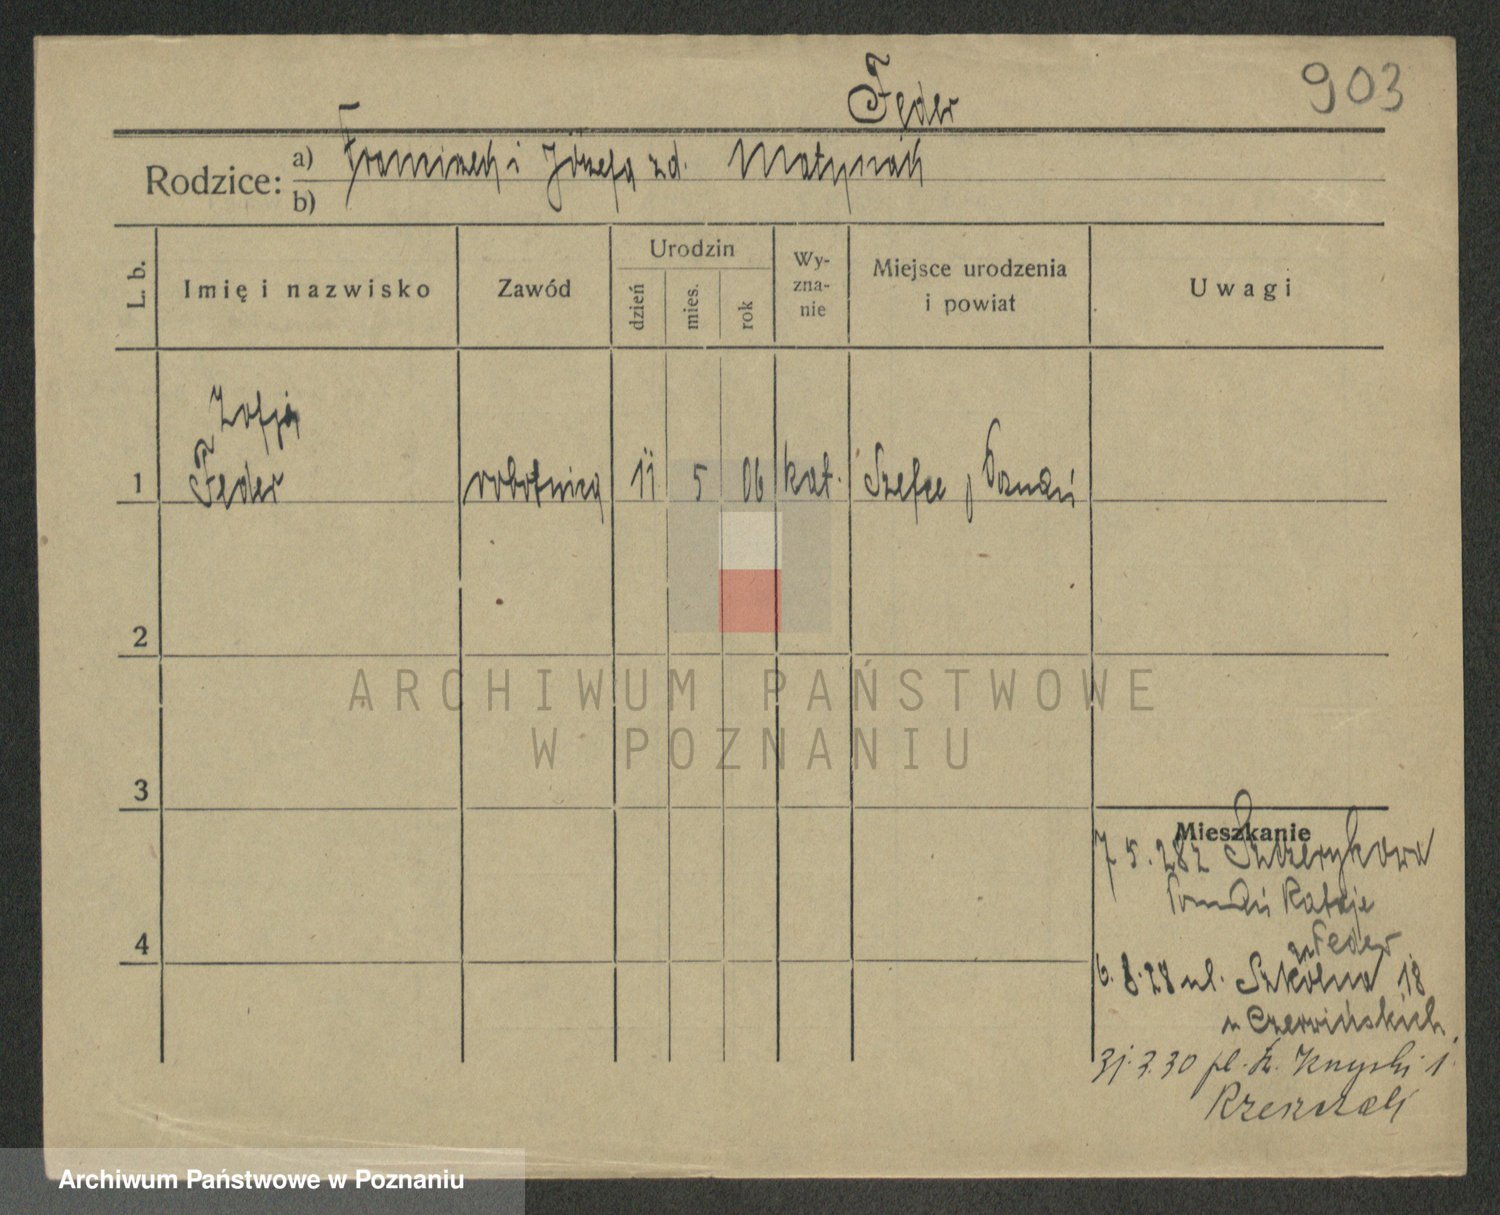 903
Feder
Rodzice: a) Franciszek i Józefa z d. Matysiak
b)
L. b.
Imię i nazwisko
Zawód
Urodzin
dzień
mies.
rok
Wy-
zna-
nie
Miejsce urodzenia
i powiat
Uwagi
Zofja
1 Feder robotnica 11 5 06 kat. p. Poznań
2
ARCHIWUM PAŃSTWOWE
W POZNANIU
3
Mieszkanie
7 5. 28
Poznań Rataje
Feder
6. 8. 28 ul. Szkólna 18
Czerwińskich
31. 3. 30 pl.
4
Archiwum Państwowe w Poznaniu